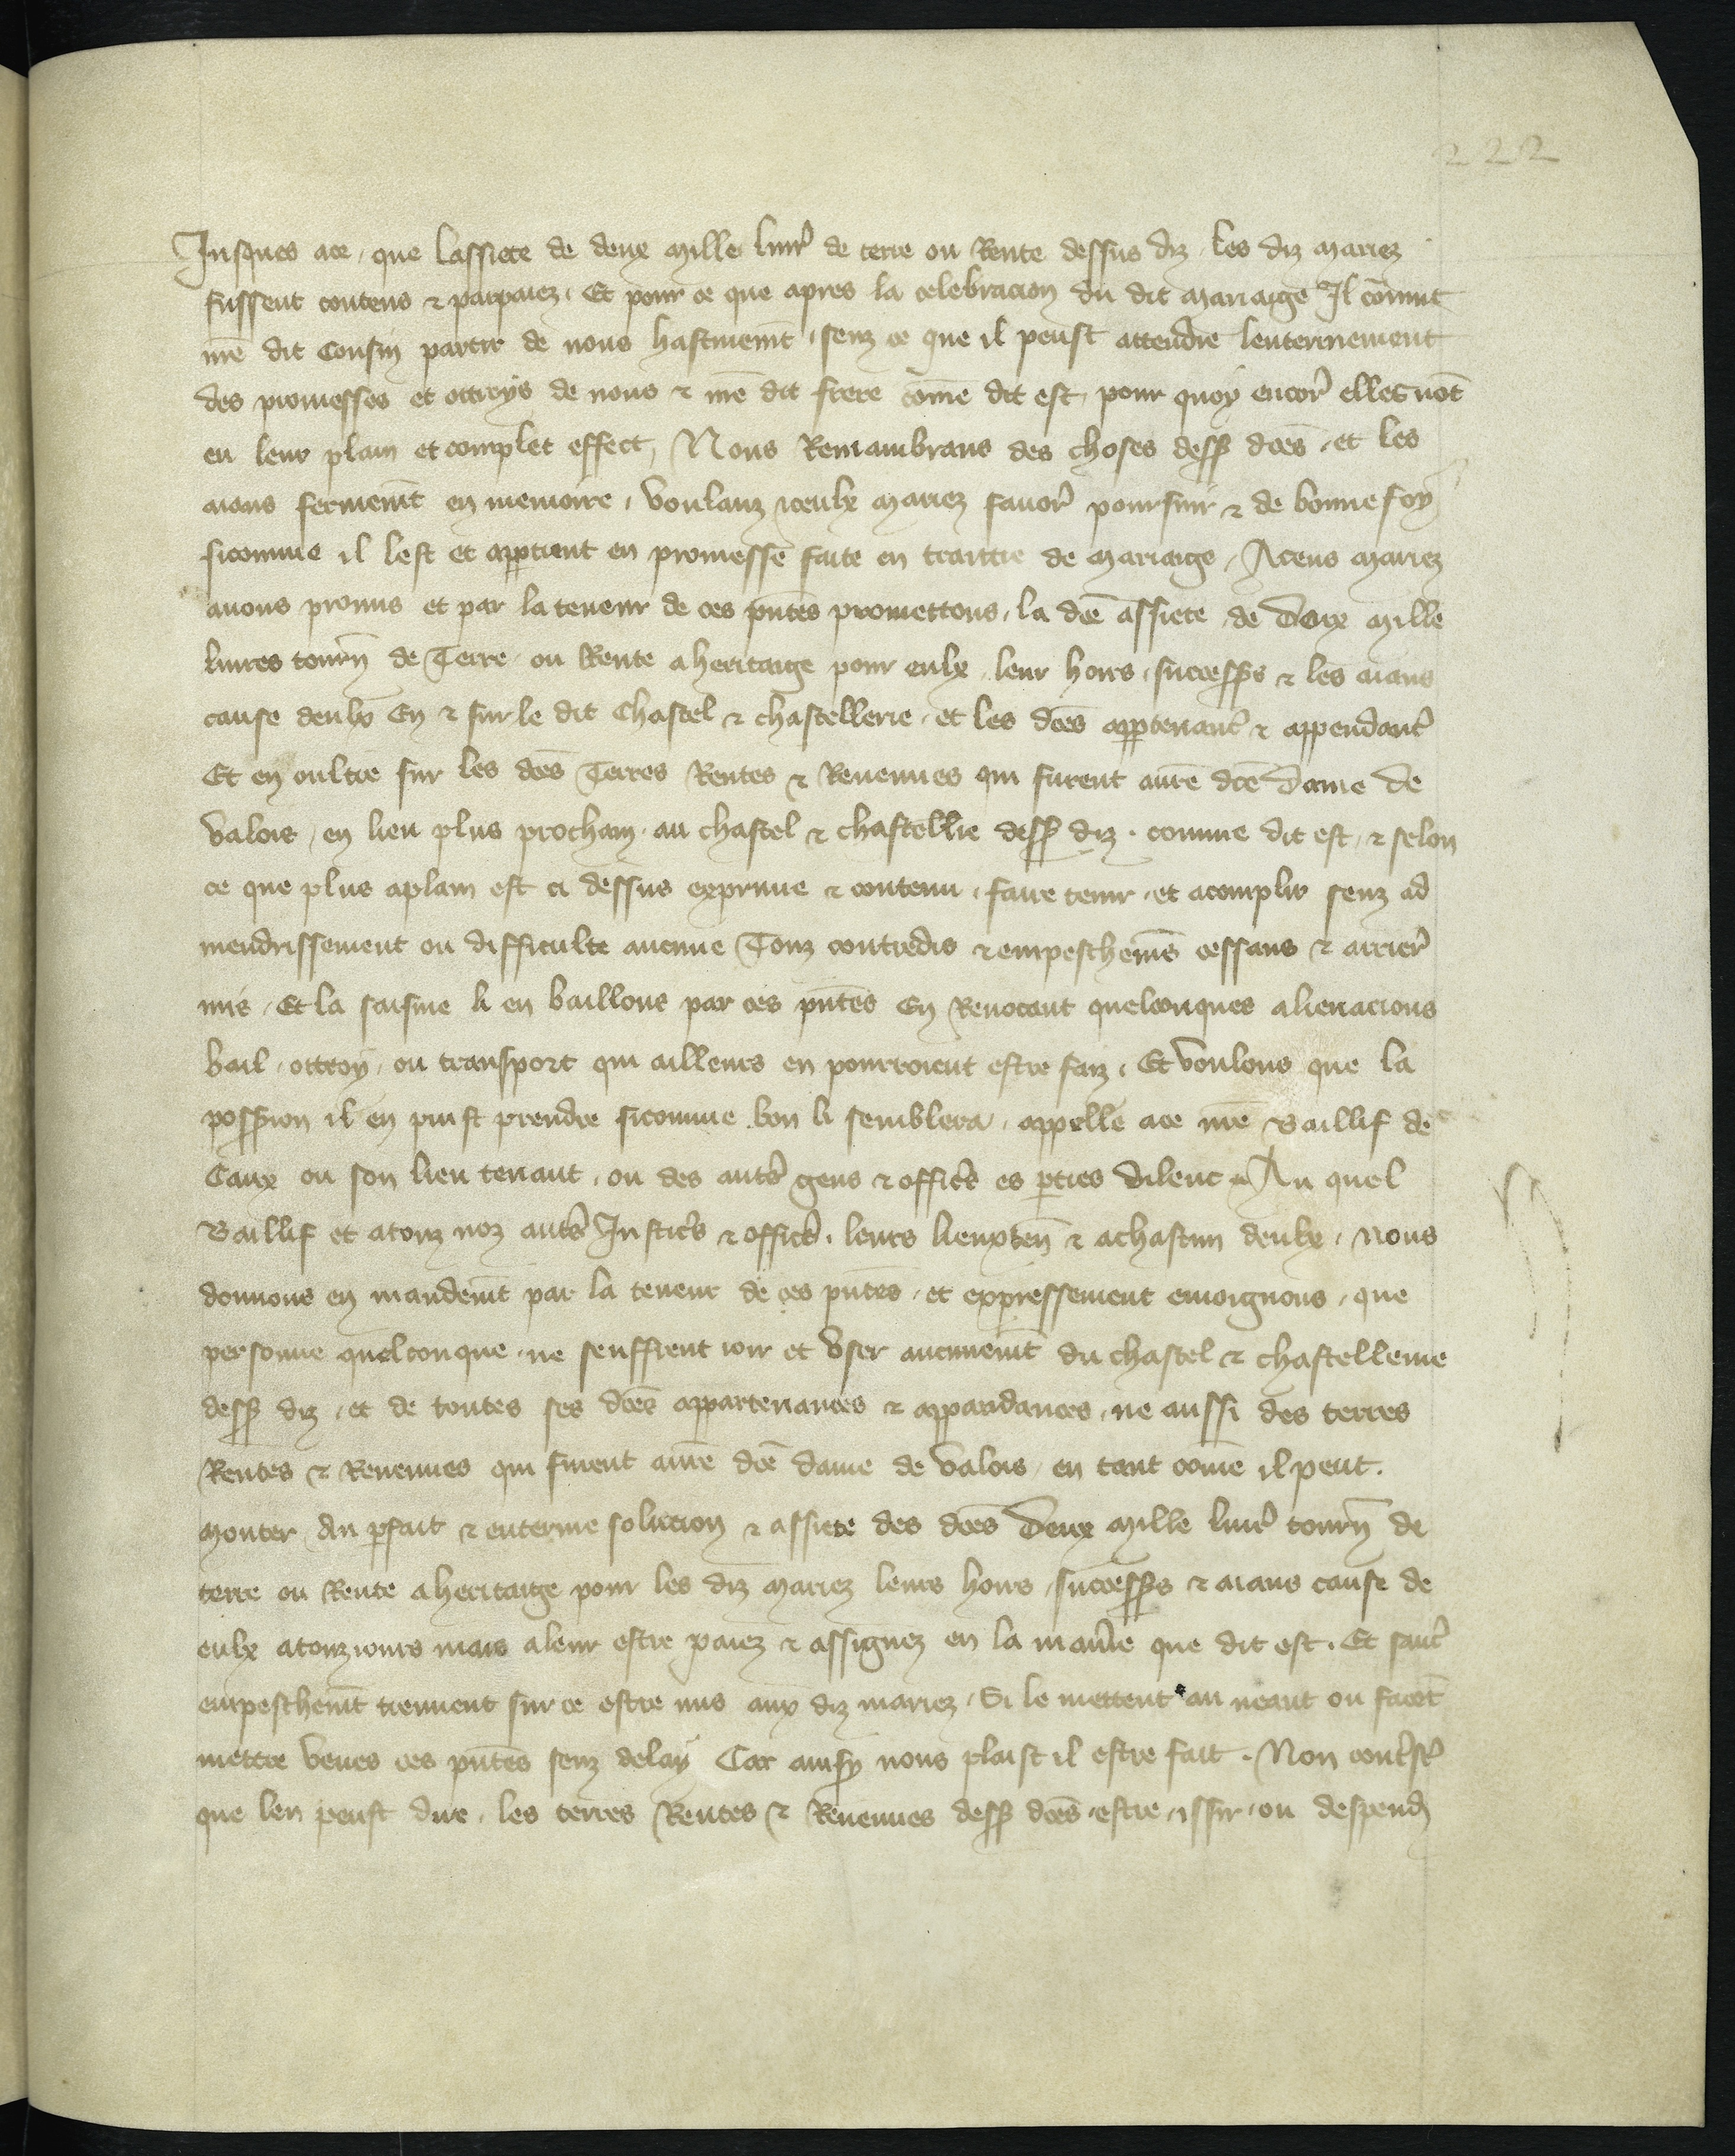 222
Jusques ace, que lassiete de deux mille livr̃ de terre ou Rente dessus diz, les diz mariez
fussent contens & parpaiez. Et pour ce que apres la celebracion du dit mariaige Il cōvint
mō dit Cousin partir de nous hastivemēt, senz ce que il peust attendre lenterinement
des promesses et ottroys de nous & mō dit frere cōme dit est, pour quoy encor̃ elles nōt
eu leur plain et complet effect, Nous Remambrans des choses dess⁹ dc̄es, et les
aians fermemēt en memoire, voulanz iceulx mariez favor̃ poursuir & de bonne foy
sicomme il lest et appꝑtient en promesse faite en traittie de mariaige, Aceus mariez
avons promis et par la teneur de ces pn̄tes promettons, la dc̄e assiete de Deux mille
livres tourñ de Terre ou Rente a heritaige pour eulx, leur hoirs, success⁹s & les aians
cause deulx En & sur le dit Chastel & chastellerie, et les dc̄es appꝑtenanc̃ & appendanc̃
Et en oultre sur les dc̄es Terres Rentes & Revenues qui furent anr̄e dc̄e Dame de
valois, en lieu plus prochain au chastel & chastellīe dess⁹ diz, comme dit est, & selon
ce que plus aplain est ci dessus exprime & contenu, faire tenir, et acomplir senz ad
mendrissement ou difficulte aucune Touz contredis & empeschemēs cessans & arrier̃
mis, Et la saisine li en baillons par ces pn̄tes En Revocant quelconques alienacions
bail, ottroy, ou transport qui ailleurs en pourroient estre faiz. Et voulons que la
poss⁹ion il en puist prendre sicomme bon li semblera, appelle ace nr̄e Baillif de
Caux ou son lieu tenant, ou des autr̃s gens & offic̃s es ꝑties dilenc Au quel
Baillif et atouz noz autr̃s Justic̃s & offic̃s, leurs lieuxteñ & achascun deulx, nous
donnons en mandemēt par la teneur de ces pn̄tes, et expressement enioignons, que
personne quelconque, ne seuffrent ioir et user aucunemēt du chastel & chastellenie
dess⁹ diz, et de toutes ses dc̄es appartenances & appandances, ne aussi des terres
Rentes & Revenues qui furent anr̄e dc̄e dame de valois, en tant cōme il peut.
monter, Au ꝑfait & enterine solucion & assiete des dc̄es Deux mille livr̃ tourñ de
terre ou Rente a heritaige pour les diz mariez leurs hoirs, success⁹s & aians cause de
eulx atouziours mais aleur estre paiez & assignez en la manīe que dit est. Et sauc̃
empeschemēt tiennent sur ce estre mis aux diz mariez, Si le mettent au neant ou facēt
mettre veues ces pn̄tes senz delay Car ainsy nous plaist il estre fait. Non contr̃st̃
que len peust dire, les terres Rentes & Revenues dess⁹ dc̄es, estre, issir, ou despend̃